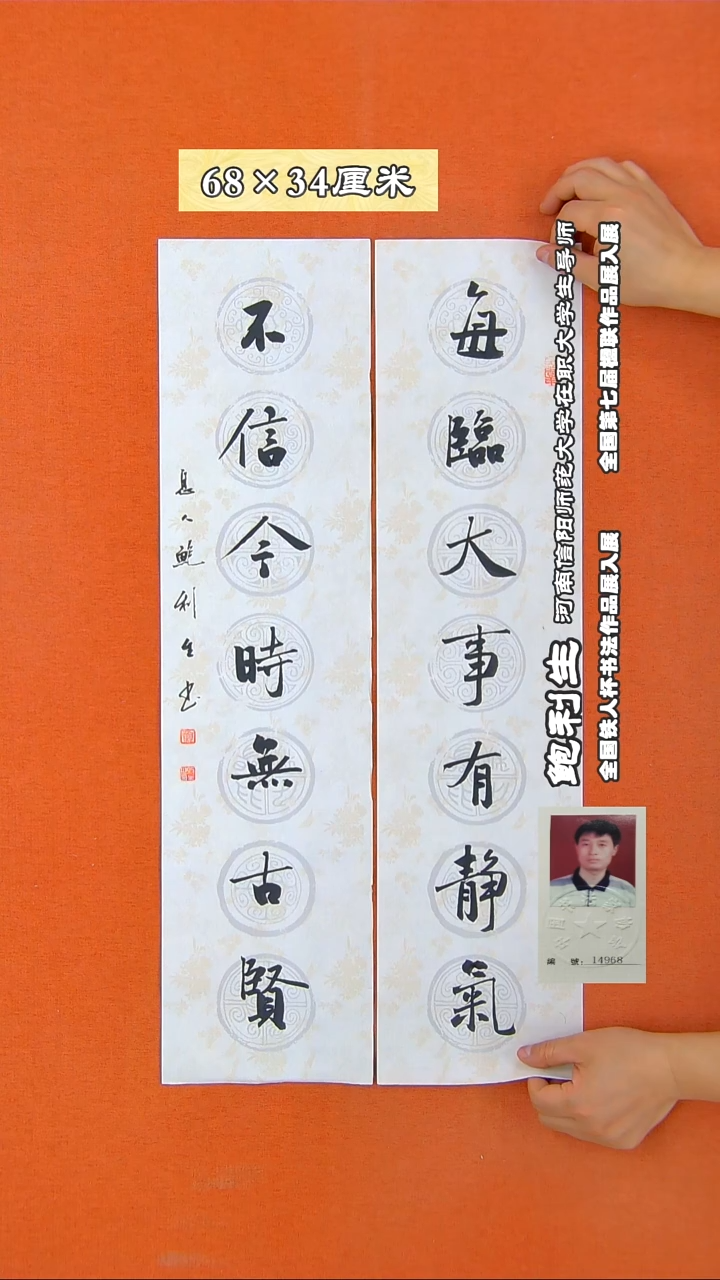 68×34厘米
每臨大事有静氣
不信今時無古賢
息人鮑利生书
鲍利生
河南信阳师范大学在职大学生导师
全国第七届楹联作品展入展
全国铁人杯书法作品展入展
編 號：14968